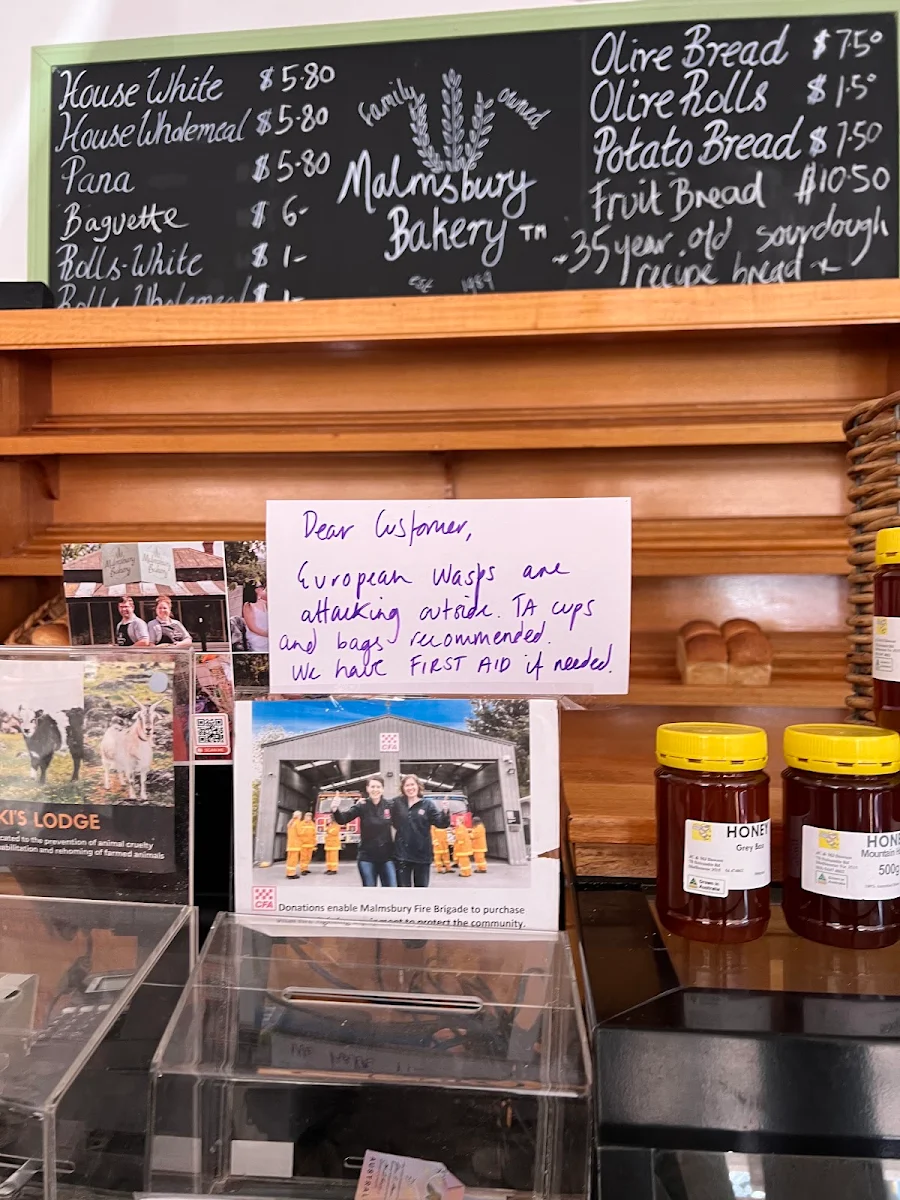 House White $5.80
House Wholemeal $5.80
Pana $5.80
Baguette $6-
Rolls-White $1-
Rolls Wholemeal $1-
Family owned
Malmsbury
Bakery TM
est 1989
Olive Bread $7.50
Olive Rolls $1.50
Potato Bread $7.50
Fruit Bread $10.50
35 year old sourdough
recipe bread
Dear Customer,
European wasps are
attacking outside. TA cups
and bags recommended.
We have FIRST AID if needed.
Malmsbury
Bakery
KI'S LODGE
cated to the prevention of animal cruelty
abilitation and rehoming of farmed animals
CFA
CFA
Donations enable Malmsbury Fire Brigade to purchase
ment to protect the community.
HONEY
Grey Box
Grown in
Australia
HONE
Mountain
500g
AUSTRAL